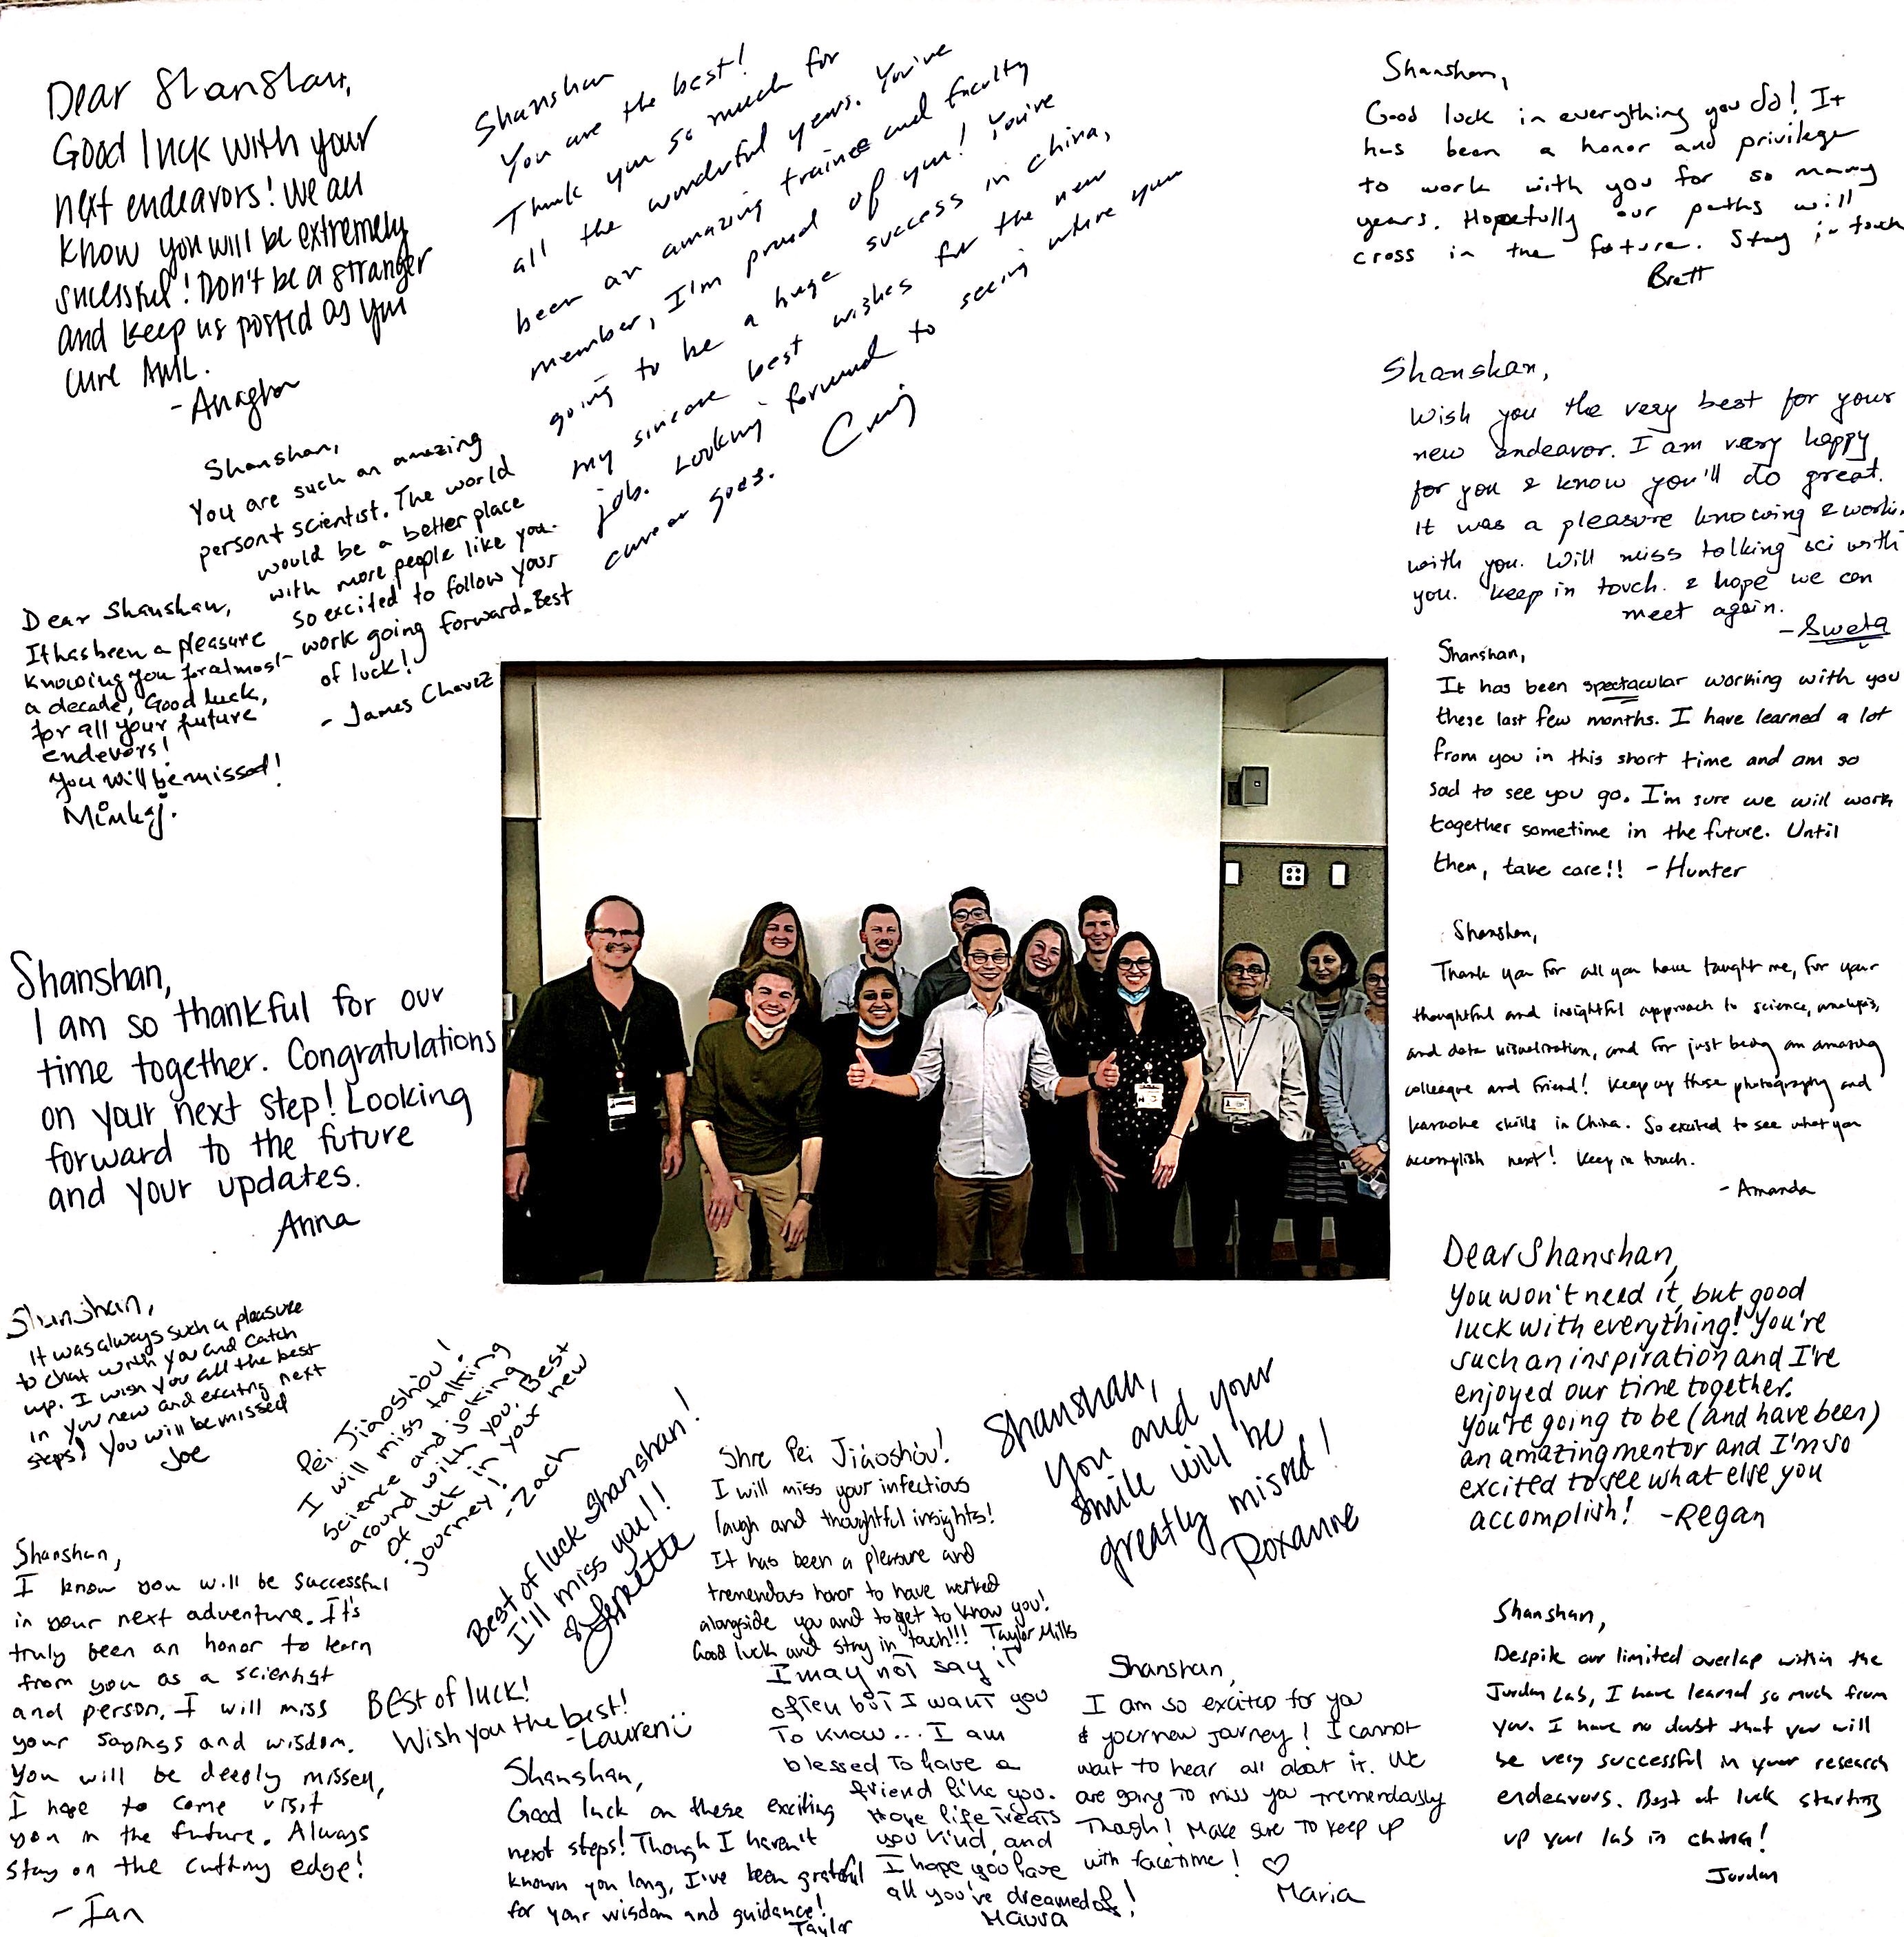 Dear Shanshan,
Good luck with your
next endeavors! We all
know you will be extremely
sucessful! Don't be a stranger
and keep us posted as you
cure AML.
-Anagha
Shanshan
You are the best!
Thank you so much for
all the wonderful years. You've
been an amazing trainee and faculty
member, I'm proud of you! You're
going to be a huge success in china,
my sincere best wishes for the new
job. Looking forward to seeing where you
career goes. Craig
Shanshan,
Good luck in everything you do! It
has been a honor and privilege
to work with you for so many
years. Hopefully our paths will
cross in the future. Stay in touch
Brett
Shanshan,
You are such an amazing
person+ scientist. The world
would be a better place
with more people like you.
So excited to follow your
work going forward. Best
of luck!
- James Chavez
Shanshan,
Wish you the very best for your
new endeavor. I am very happy
for you & know you'll do great.
It was a pleasure knowing & workin
with you. Will miss talking sci with
you. Keep in touch. & hope we can
meet again.
-Sweta
Dear Shanshan,
It has been a pleasure
knowing you for almost
a decade, Good luck,
for all your future
endevors!
You will be missed!
Minhaj.
Shanshan,
It has been spectacular working with you
these last few months. I have learned a lot
from you in this short time and am so
sad to see you go. I'm sure we will work
together sometime in the future. Until
then, take care!! -Hunter
Shanshan,
Thank you for all you have taught me, for your
thoughtful and insightful approach to science, analysis,
and data visualization, and for just being an amazing
colleague and friend! Keep up those photography and
karaoke skills in China. So excited to see what you
accomplish next! Keep in touch.
- Amanda
Shanshan,
I am so thankful for our
time together. Congratulations
on your next step! Looking
forward to the future
and your updates.
Anna
Dear Shanshan,
You won't need it, but good
luck with everything! You're
such an inspiration and I've
enjoyed our time together.
You're going to be (and have been)
an amazing mentor and I'm so
excited to see what else you
accomplish! -Regan
Shanshan,
It was always such a pleasure
to chat with you and catch
up. I wish you all the best
in your new and exciting next
steps! You will be missed
Joe
Pei Jiàoshòu!
I will miss talking
science and joking
around with you. Best
of luck in your new
journey! -Zach
Best of luck Shanshan!
I'll miss you!!
Shre Pei Jiàoshòu!
I will miss your infectious
laugh and thoughtful insights!
It has been a pleasure and
tremendous honor to have worked
alongside you and to get to know you!
Good luck and stay in touch!!! Taylor Mills
Shanshan,
You and your
smile will be
greatly missed!
Roxanne
Shanshan,
I know you will be successful
in your next adventure. It's
truly been an honor to learn
from you as a scientist
and person. I will miss
your sayings and wisdom.
You will be deeply missed,
I hope to come visit
you in the future. Always
stay on the cutting edge!
-Ian
BEst of luck!
Wish you the best!
-Lauren
Shanshan,
Good luck on these exciting
next steps! Though I haven't
known you long, I've been grateful
for your wisdom and guidance!
Taylor
I may not say it
often but I want you
To know... I am
blessed To have a
friend like you.
Hope life Treats
you kind, and
I hope you have
all you've dreamed of!
Maura
Shanshan,
I am so excited for you
& your new journey! I cannot
wait to hear all about it. We
are going To miss you Tremendously
Though! Make sure To keep up
with facetime! ♡
Maria
Shanshan,
Despite our limited overlap within the
Jordan Lab, I have learned so much from
you. I have no doubt that you will
be very successful in your research
endeavors. Best of luck starting
up your lab in china!
Jordan